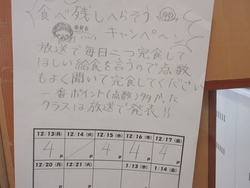 食べ残しへらそう
キャンペーン
放送で毎日二つ完食して
ほしい給食を言うので点数
もよく聞いて完食してください
一番ポイント(点数)多かった
クラスは放送で発表!!
12/13(月) 12/14(火) 12/15(水) 12/16(木) 12/17(金)
4P P 4P 4P 4P
12/20(月) 12/21(火) 1/13(木) 1/14(金)
P P P P